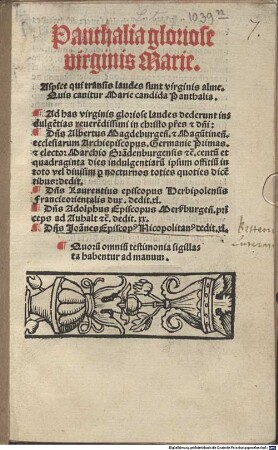 1039
7.
Panthalia gloriose
virginis Marie.
Aspice qui transis laudes sunt virginis alme.
Quis canitur Marie candida Panthalia.
¶ Ad has virginis gloriose laudes dederunt in
dulgētias reuerēdissimi in christo pr̄es ⁊ dn̄i:
¶ Dn̄s Albertus Magdeburgeñ. ⁊ Magūtineñ.
ecclesiarum Archiepiscopus, Germanie Primas,
⁊ elector: Marchio Brādenburgensis ⁊c̄. centū et
quadraginta dies indulgentiarū ipsum officiū in
toto vel diuisim p nocturnos toties quoties dicē
tibus: dedit.
¶ Dn̄s Laurentius episcopus Herbipolensis
Francieorientalis dux. dedit. xl.
¶ Dn̄s Adolphus Episcopus Mersburgeñ. prī
ceps ad Anhalt ⁊c̄. dedit. xx.
¶ Dn̄s Joānes Episcopꝰ Nicopolitanꝰ dedit. xl.
¶ Quorū omniū testimonia sigillas
ta habentur ad manum.